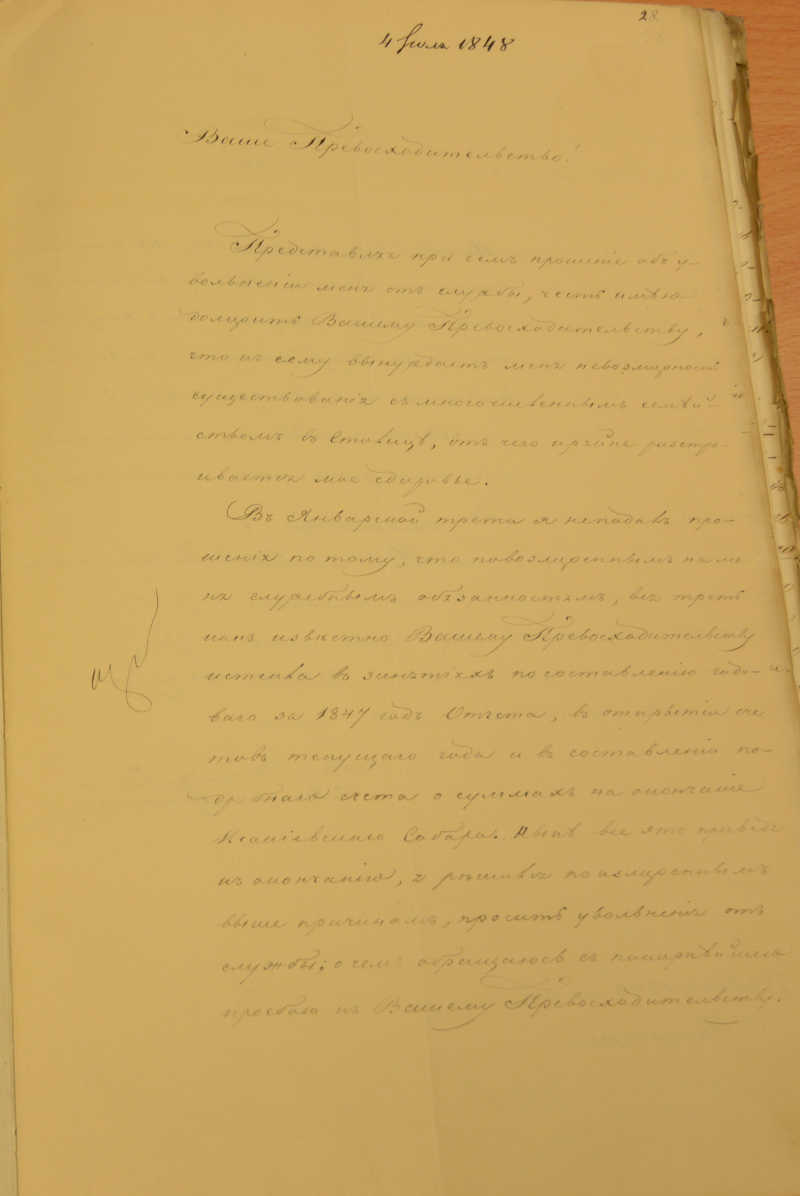 28
4 Июля 1848
Ваше Превосходительство!
Представляя при семъ прошеніе объ у-
вольненіи меня отъ службы, честь имѣю
доложить Вашему Превосходительству,
что къ сему вынуждаетъ меня невозможность
существованія съ многочисленнымъ семей-
ствомъ въ Столицѣ, отъ чего крайне разстро-
ивается мое здоровье.
Въ Январской трети я неподалъ про-
шенія по тому, что по возложеннымъ на ме
ня служебнымъ обязанностямъ, вся треть
какъ извѣстно Вашему Превосходительству
истекла въ занятіяхъ по составленію годо-
ваго за 1847 годъ Отчета, въ открытіи сче
товъ текущаго года и въ составленіи по-
дробнаго счета о суммахъ на окончаніе
Исакіевскаго Собора. Нынѣ все это привѣдя
къ окончанію, я рѣшился по изложеннымъ
выше причинамъ, просить увольненія отъ
службы; о чемъ обращаюсь съ покорнѣйшею
просьбою къ Вашему Превосходительству.